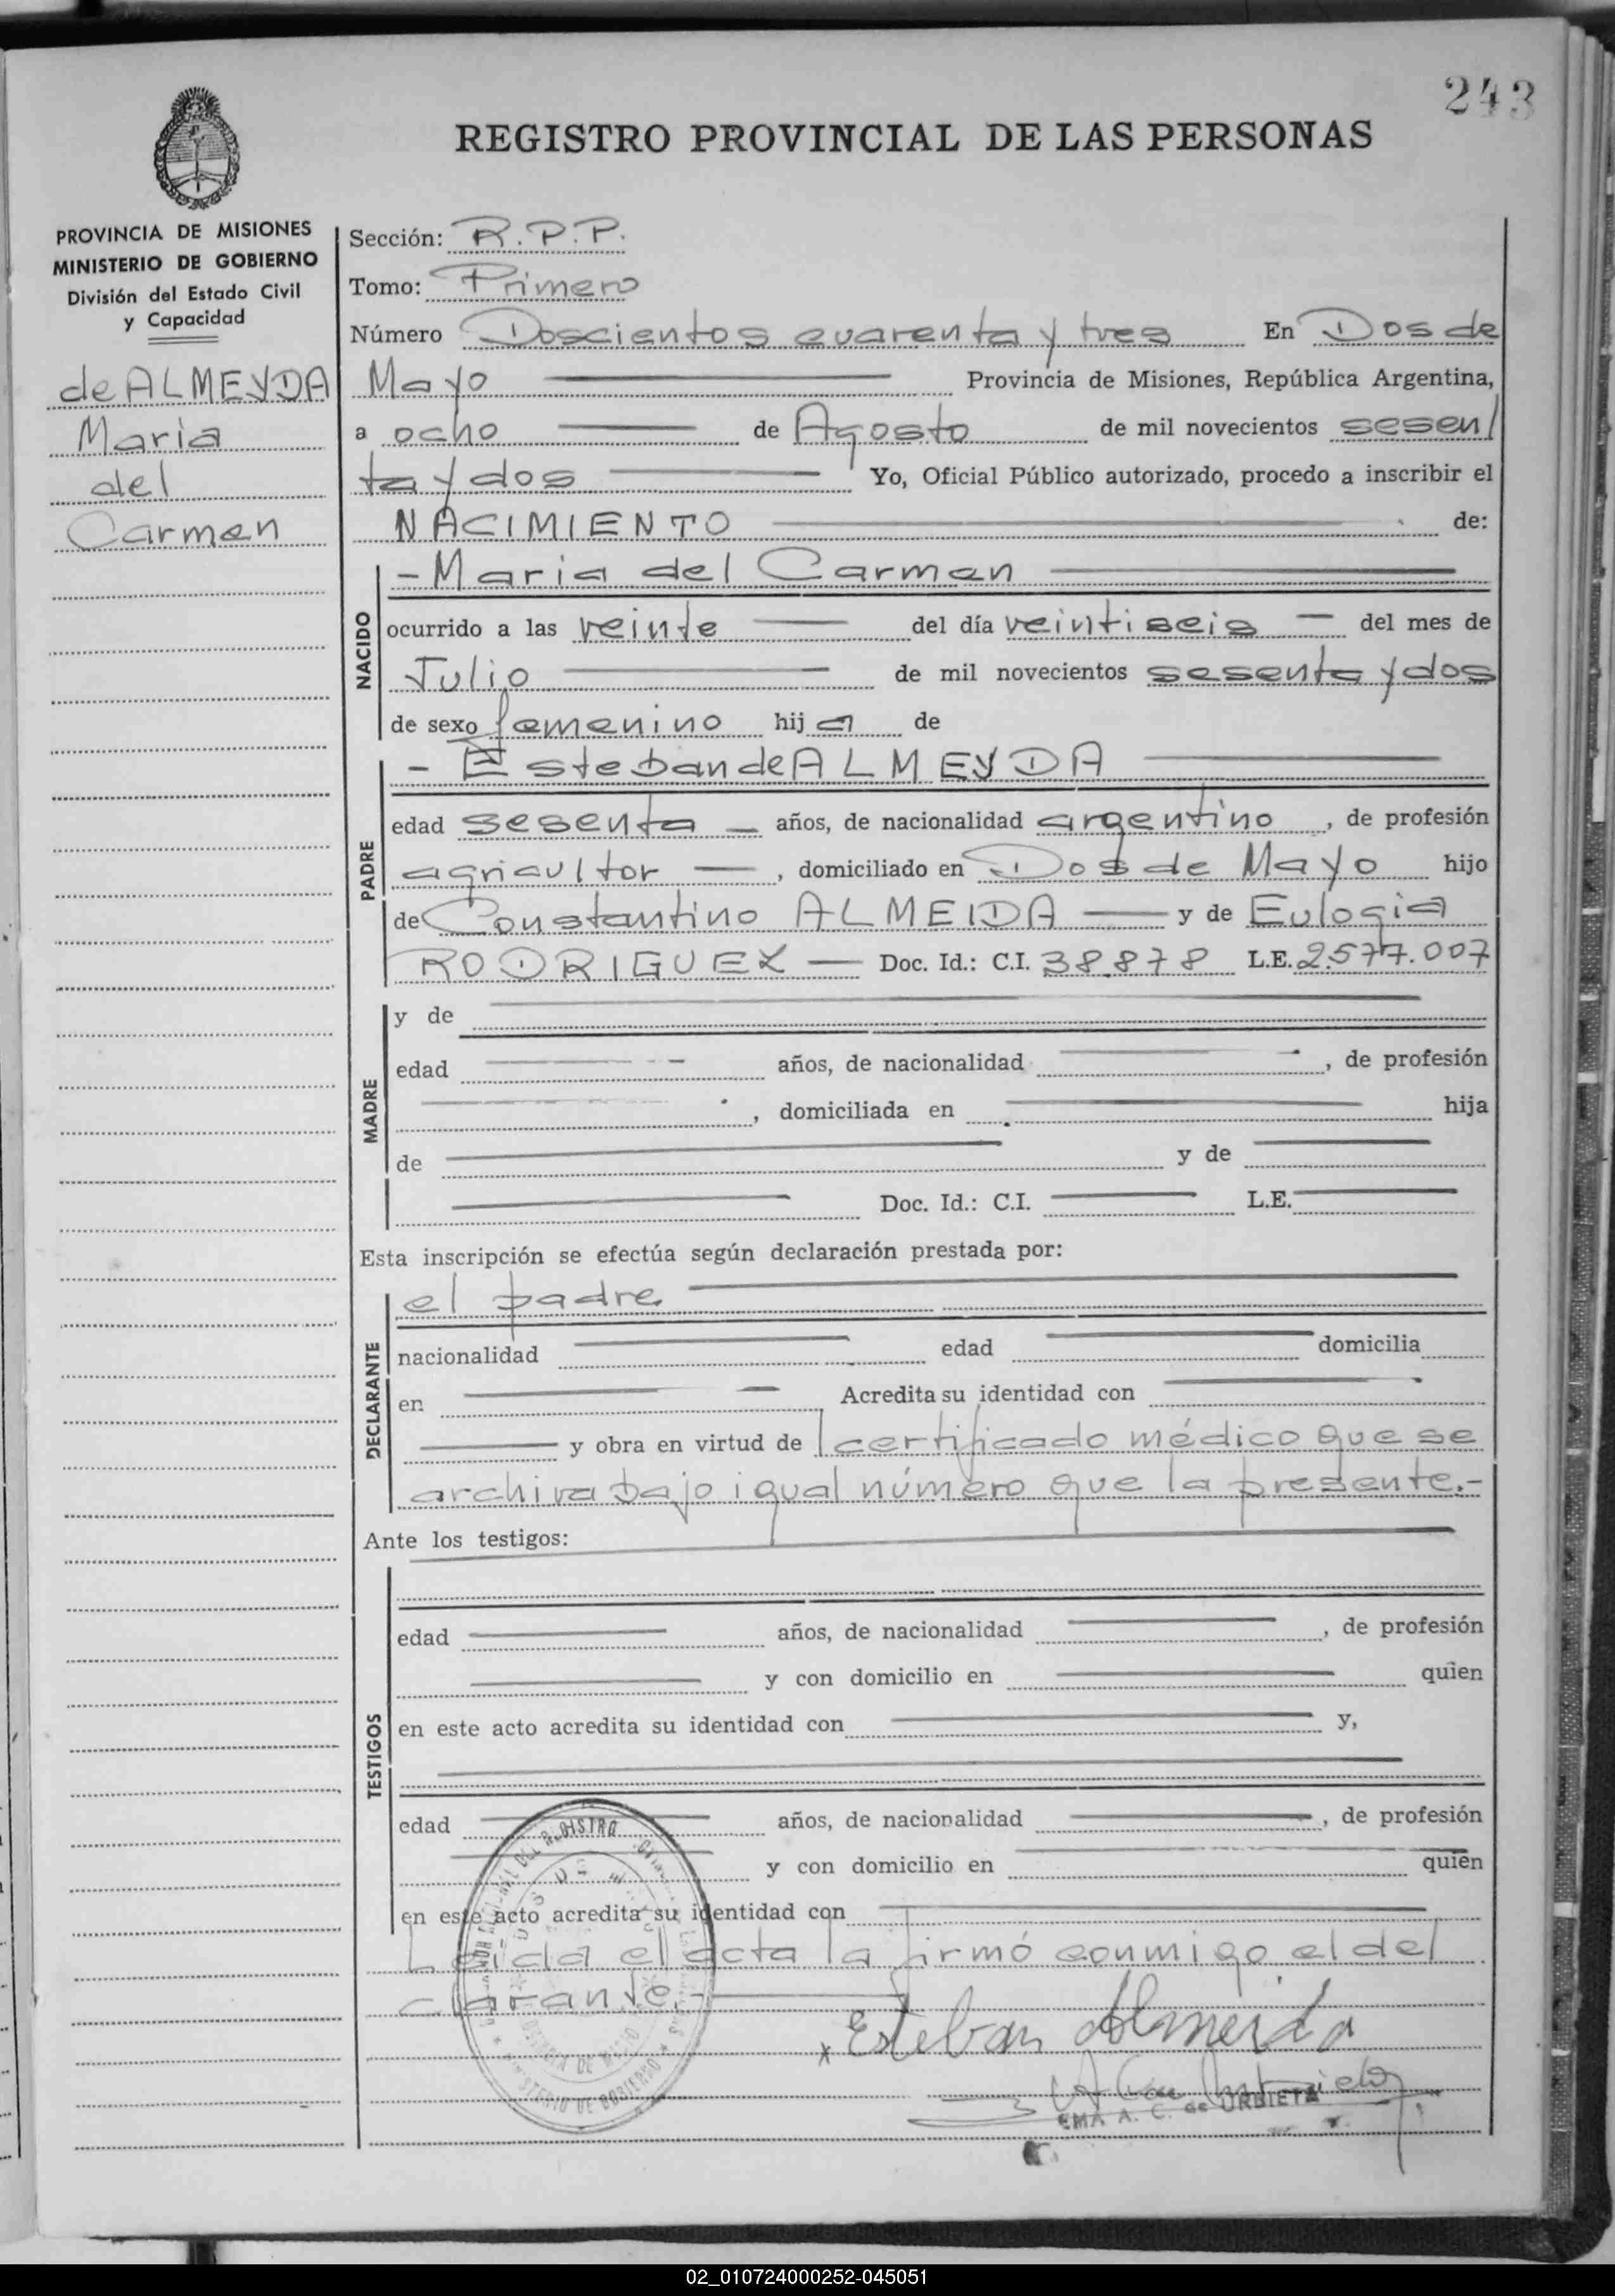 243
REGISTRO PROVINCIAL DE LAS PERSONAS
PROVINCIA DE MISIONES
MINISTERIO DE GOBIERNO
División del Estado Civil
y Capacidad
de ALMEYDA
Maria
del
Carmen
Sección: R.P.P.
Tomo: Primero
Número Doscientos cuarenta y tres En Dos de
Mayo Provincia de Misiones, República Argentina,
a ocho de Agosto de mil novecientos sesen/
ta y dos Yo, Oficial Público autorizado, procedo a inscribir el
NACIMIENTO de:
NACIDO
- Maria del Carmen
ocurrido a las veinte del día veintiseis del mes de
Julio de mil novecientos sesenta y dos
de sexo femenino hija de
PADRE
- Esteban de ALMEYDA
edad sesenta años, de nacionalidad argentino, de profesión
agricultor, domiciliado en Dos de Mayo hijo
de Constantino ALMEIDA y de Eulogia
RODRIGUEZ Doc. Id.: C.I. 38.878 L.E. 2.577.007
MADRE
y de
edad años, de nacionalidad , de profesión
, domiciliada en hija
de y de
Doc. Id.: C.I. L.E.
Esta inscripción se efectúa según declaración prestada por:
DECLARANTE
el padre
nacionalidad edad domicilia
en Acredita su identidad con
y obra en virtud de certificado médico que se
archiva bajo igual número que la presente.-
Ante los testigos:
TESTIGOS
edad años, de nacionalidad , de profesión
y con domicilio en quien
en este acto acredita su identidad con y,
edad años, de nacionalidad , de profesión
y con domicilio en quien
en este acto acredita su identidad con
Leída el acta la firmó conmigo el del
clarante.-
x Esteban Almeida
EMA A. C. de URBIETA
MINISTERIO DE GOBIERNO
02_010724000252-045051